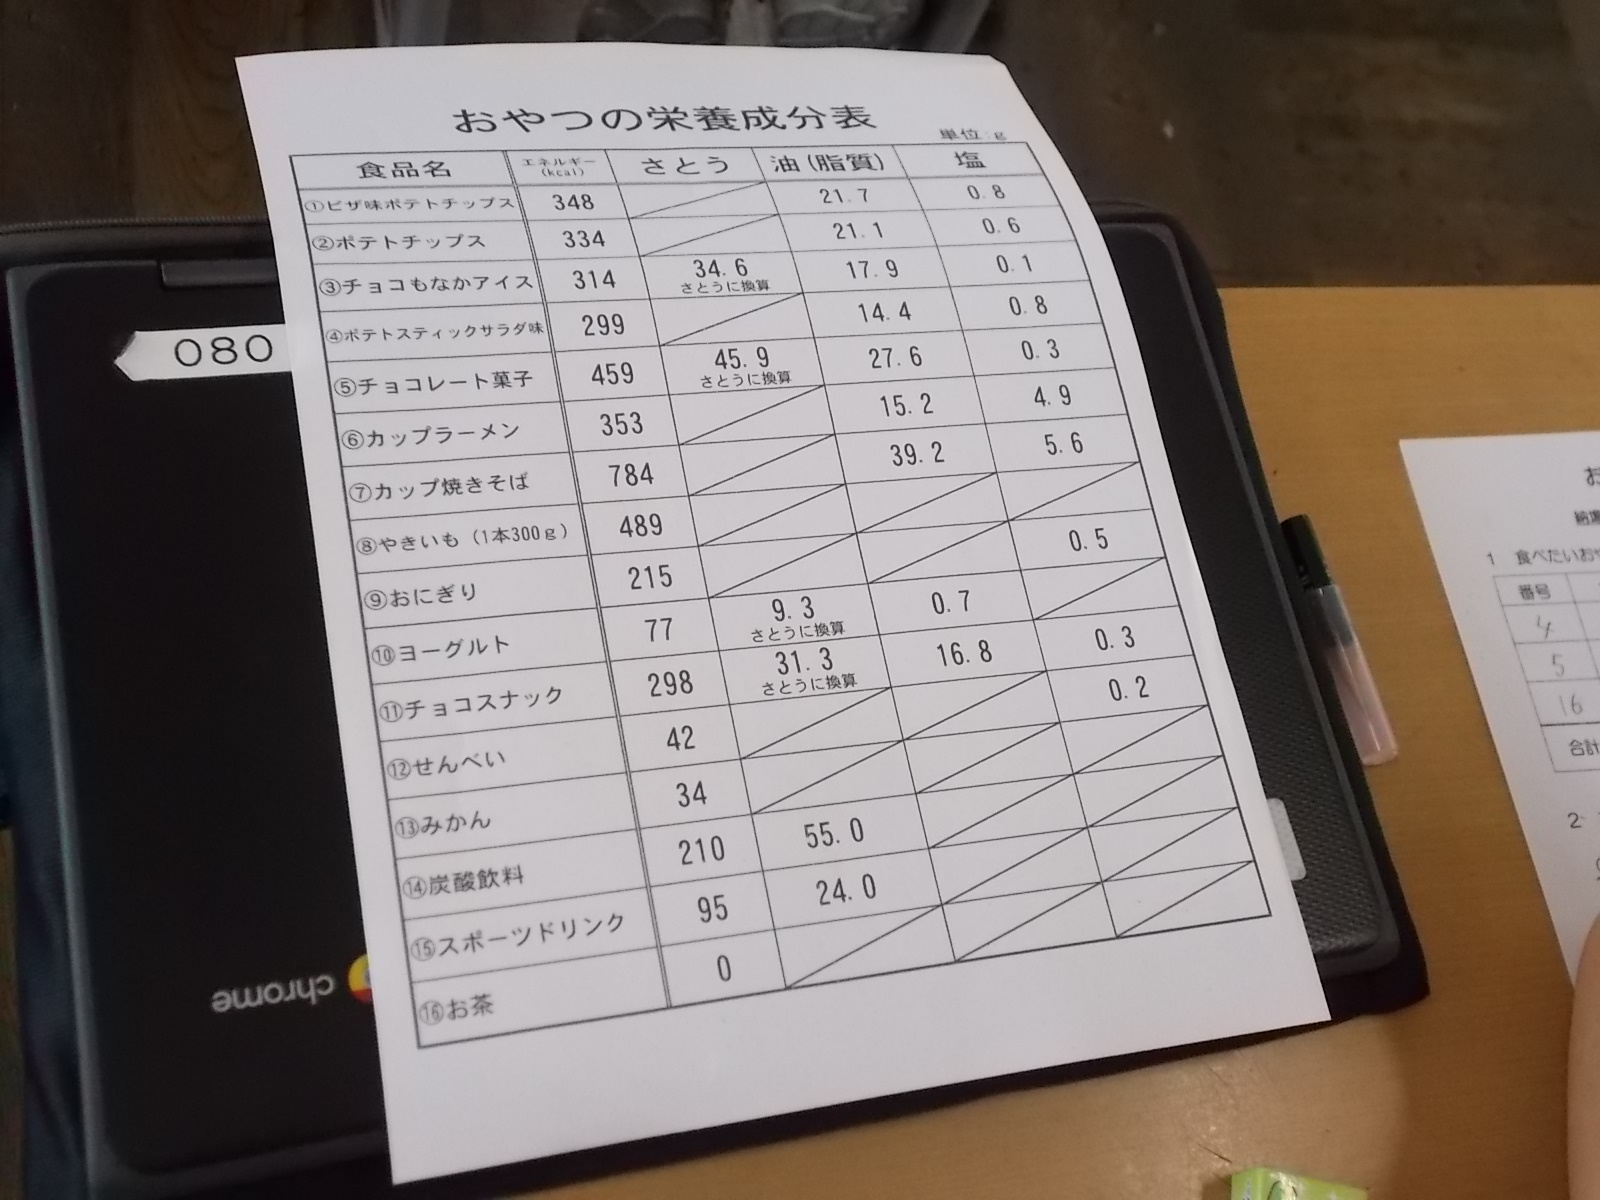 おやつの栄養成分表
単位:g
食品名 エネルギー(kcal) さとう 油(脂質) 塩
①ピザ味ポテトチップス 348 21.7 0.8
②ポテトチップス 334 21.1 0.6
③チョコもなかアイス 314 34.6 さとうに換算 17.9 0.1
④ポテトスティックサラダ味 299 14.4 0.8
⑤チョコレート菓子 459 45.9 さとうに換算 27.6 0.3
⑥カップラーメン 353 15.2 4.9
⑦カップ焼きそば 784 39.2 5.6
⑧やきいも(1本300g) 489
⑨おにぎり 215 0.5
⑩ヨーグルト 77 9.3 さとうに換算 0.7
⑪チョコスナック 298 31.3 さとうに換算 16.8 0.3
⑫せんべい 42 0.2
⑬みかん 34
⑭炭酸飲料 210 55.0
⑮スポーツドリンク 95 24.0
⑯お茶 0
080
chrome
1 食べたいお
番号
4
5
16
合計
2